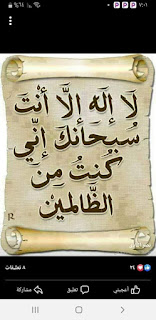 ٧:٠١
٪٦٤
لَا إِلَهَ إِلَّا أَنْتَ
سُبْحَانَكَ إِنِّي
كُنْتُ مِنَ
الظَّالِمِينَ
٨ تعليقات
أعجبني تعليق مشاركة